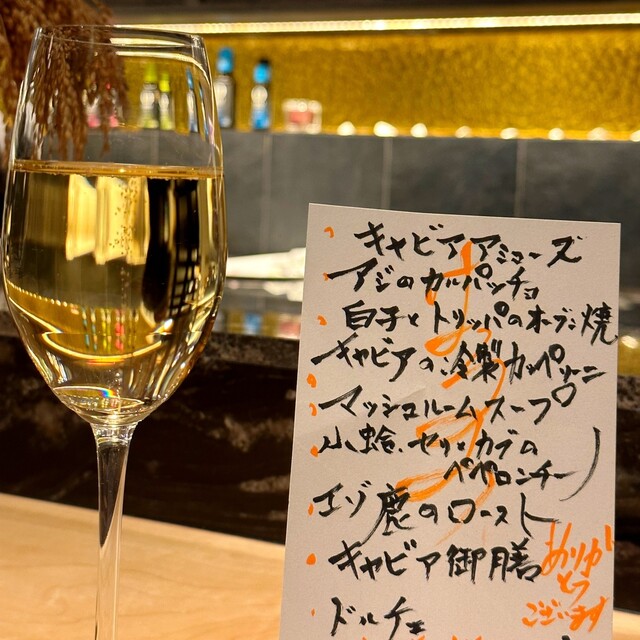 キャビアアミューズ
アジのカルパッチョ
白子とトリッパのオーブン焼
キャビアの冷製カッペリーニ
マッシュルームスープ
小蛤、セリ、カブの
ペペロンチーノ
エゾ鹿のロースト
キャビア御膳
ドルチェ
ありがとうございます